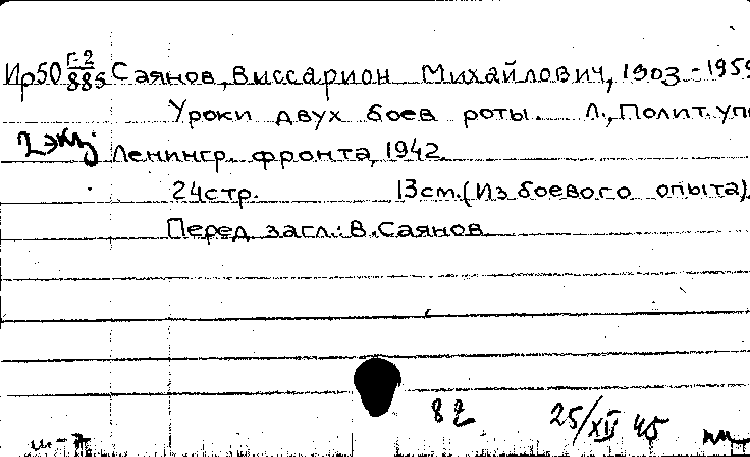 Ир50 Г-2/885 Саянов, Виссарион Михайлович, 1903-1959
Уроки двух боев роты. Л., Полит. упр
2 экз. Ленингр. фронта, 1942.
24стр. 13см. (Из боевого опыта).
Перед загл.: В. Саянов.
82 25/XII 45